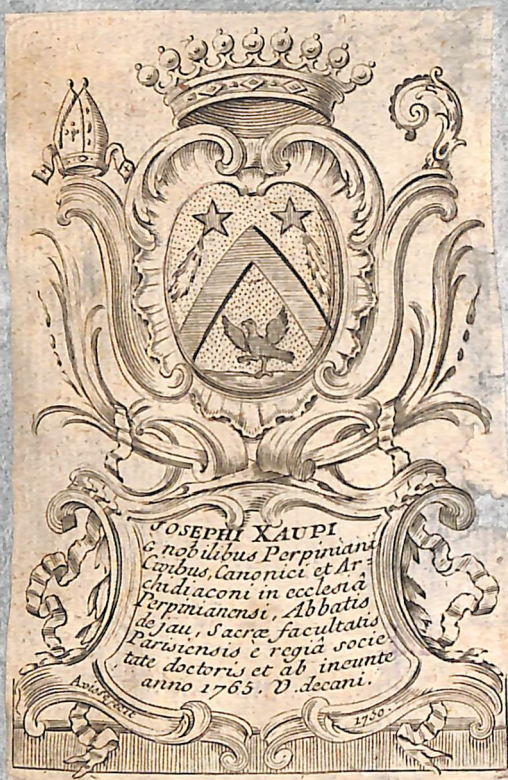 JOSEPHI XAUPI
È nobilibus Perpiniani
Civibus, Canonici et Ar=
chidiaconi in ecclesiâ
Perpinianensi, Abbatis
de Jau, Sacræ facultatis
Parisiensis è regiâ socie-
tate doctoris et ab ineunte
anno 1765. V. decani.
Avisse fecit
1750.